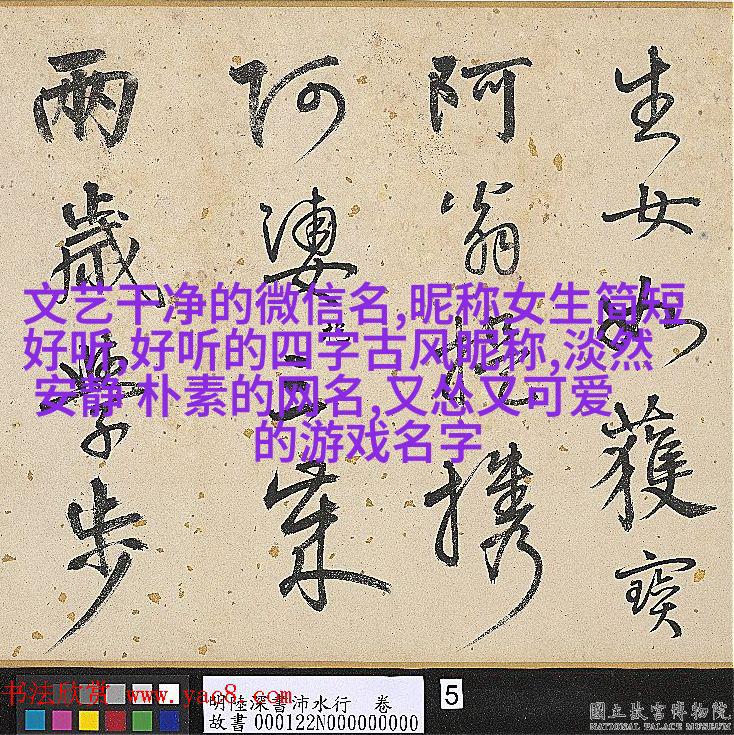 生女如獲寶
阿翁提攜
阿婆
兩歲學步
文艺干净的微信名,昵称女生简短
好听,好听的四字古风昵称,淡然
安静 朴素的网名,又怂又可爱
的游戏名字
书法欣赏 www.yac8.com
明陸深書沛水行 卷
故書 000122N000000000
5
國立故宮博物院
NATIONAL PALACE MUSEUM